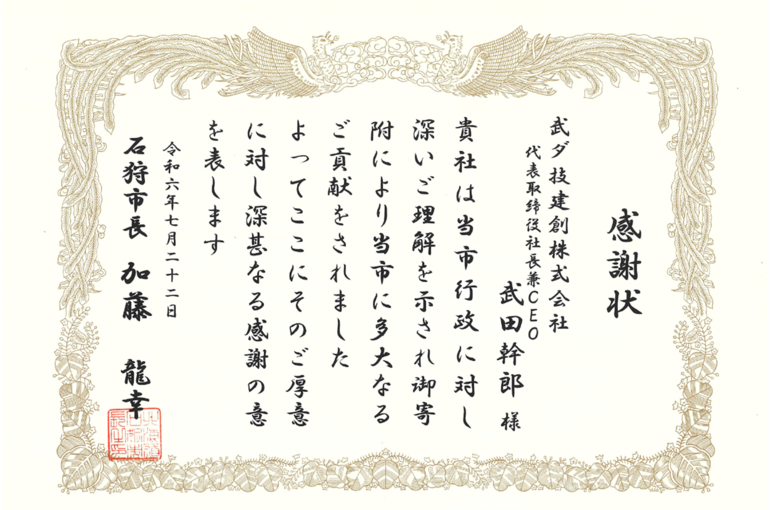 感謝状
武ダ技建創株式会社
代表取締役社長兼CEO
武田幹郎 様
貴社は当市行政に対し
深いご理解を示され御寄
附により当市に多大なる
ご貢献をされました
よってここにそのご厚意
に対し深甚なる感謝の意
を表します
令和六年七月二十二日
石狩市長 加藤 龍幸